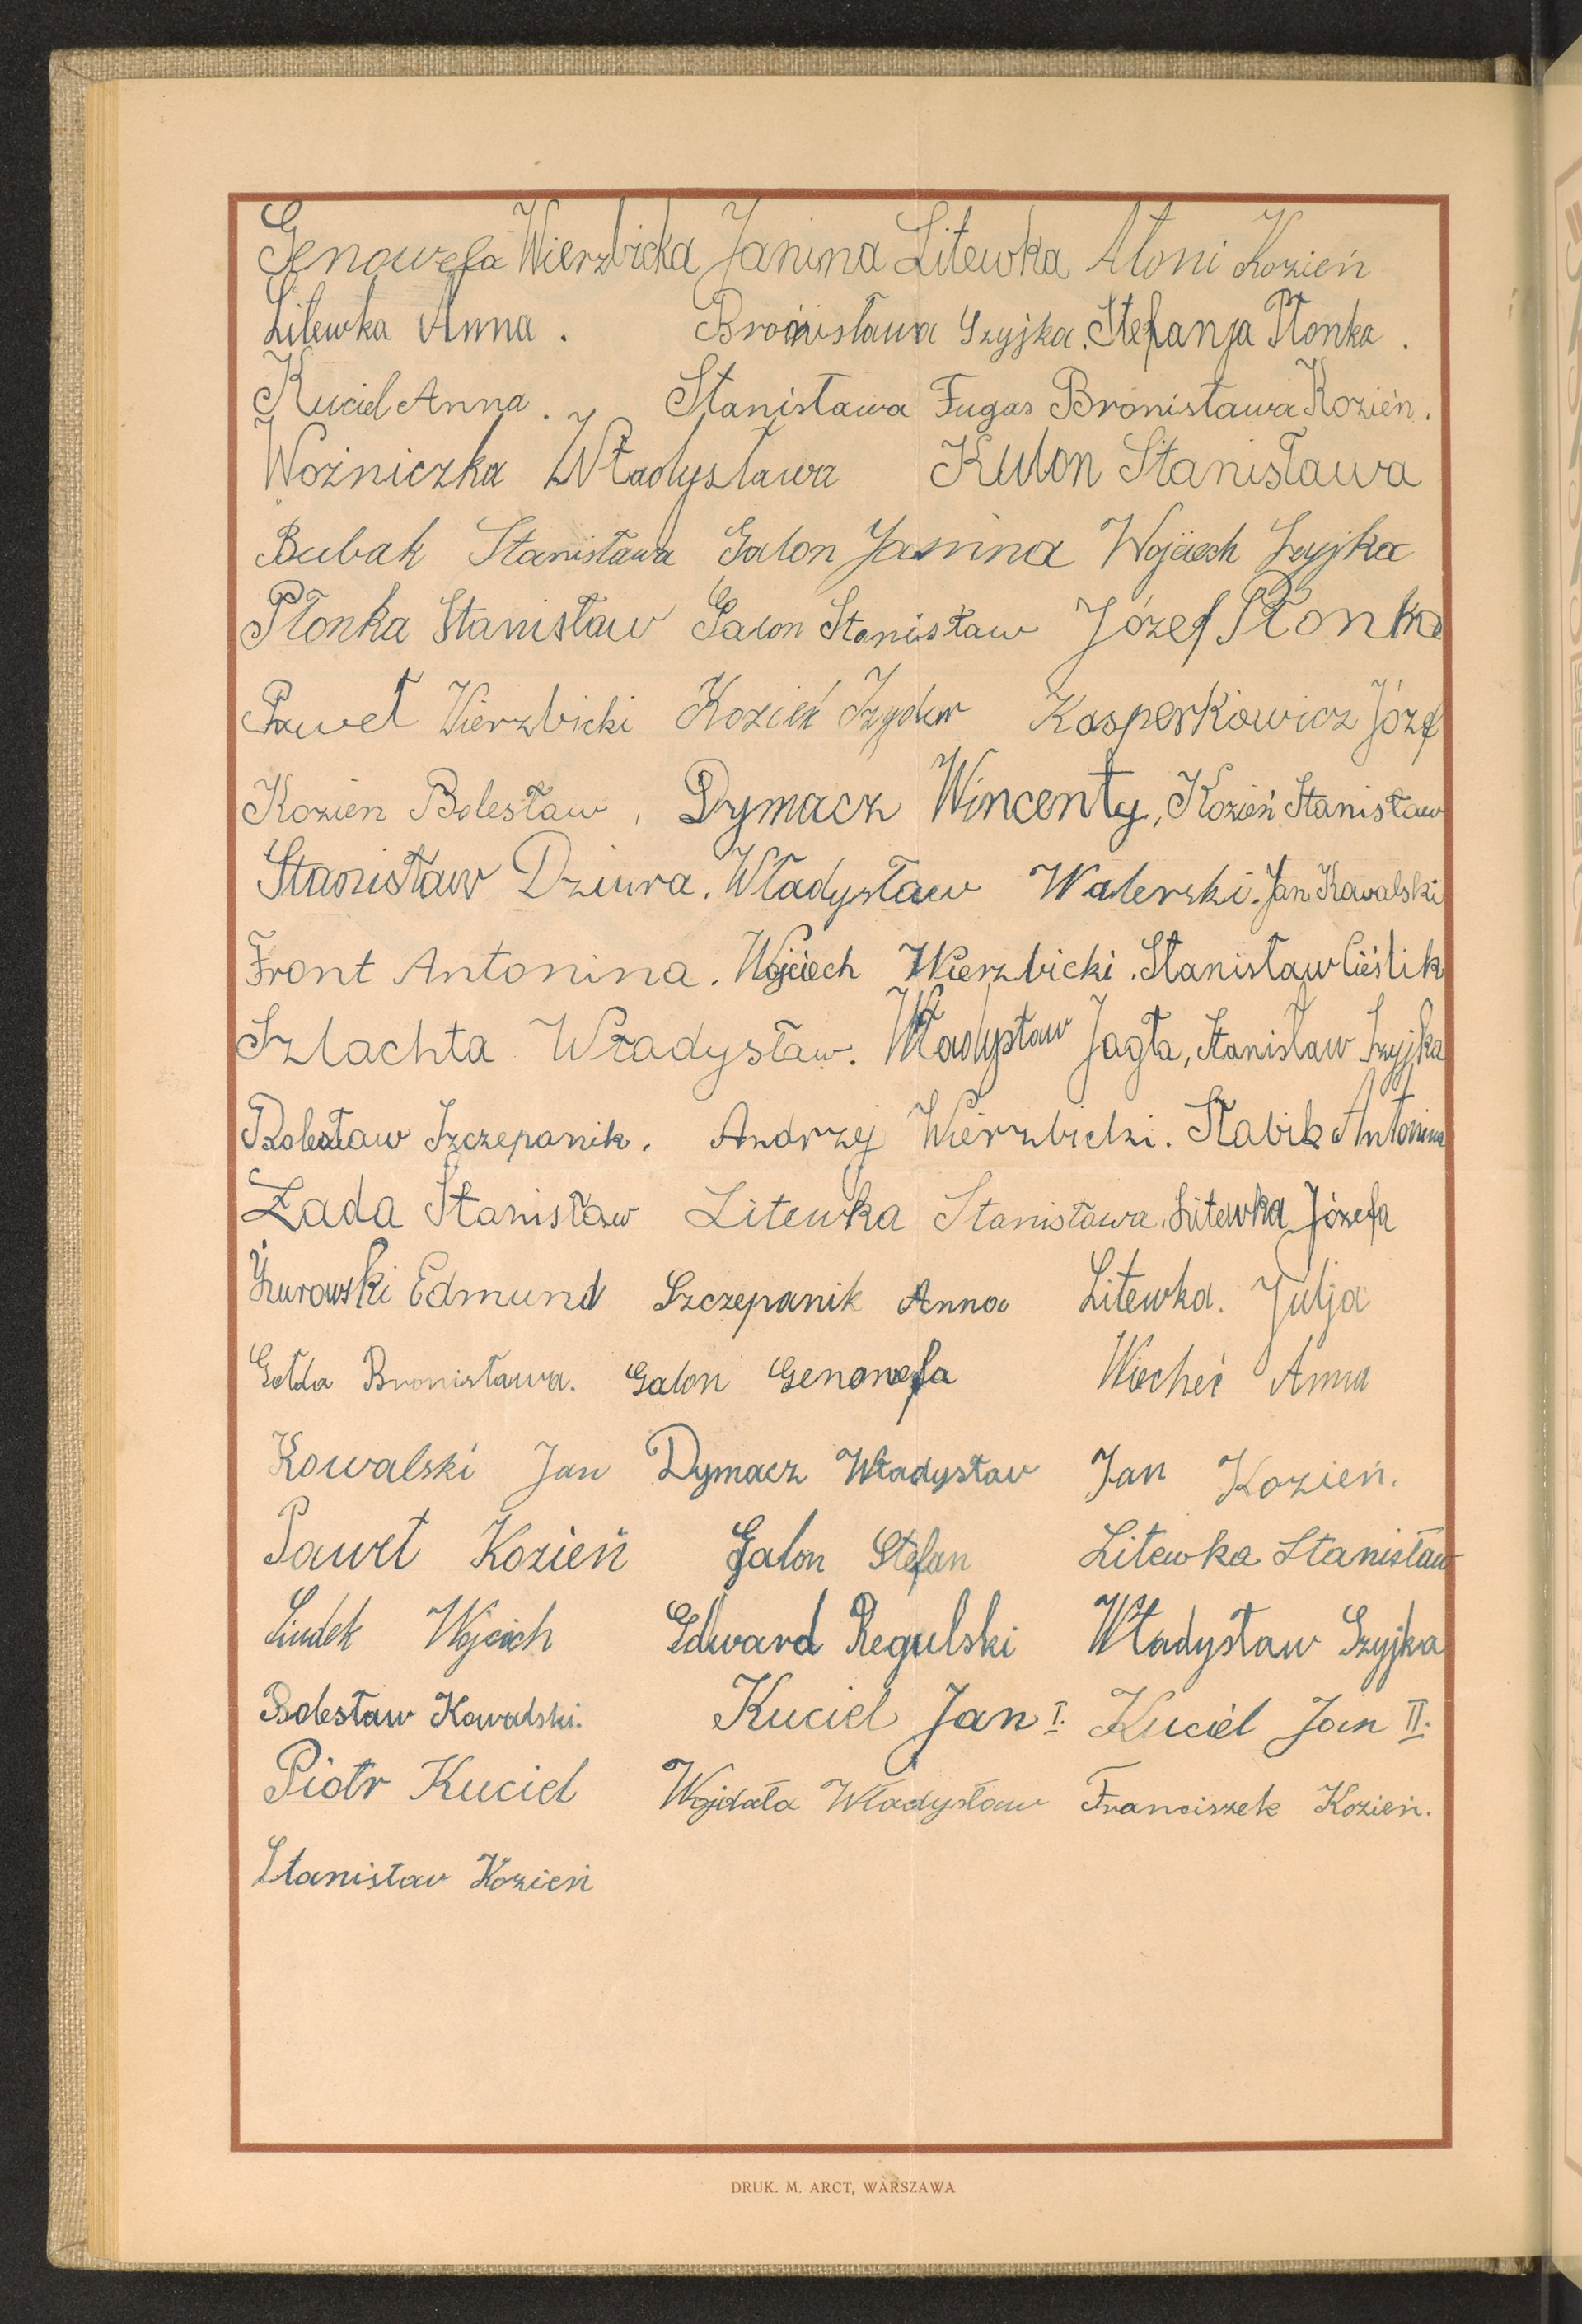 Genowefa Wierzbicka Janina Litewka Atoni Kozień
Litewka Anna. Bronisława Szyjka. Stefanja Płonka.
Kuciel Anna. Stanisława Fugas Bronisława Kozień.
Woźniczka Władysława Kulon Stanisława
Bubak Stanisława Galon Janina Wojciech Szyjka
Płonka Stanisław Galon Stanisław Józef Płonka
Paweł Wierzbicki Kozień Izydor Kasperkiewicz Józef
Kozien Bolesław, Dymacz Wincenty, Kozień Stanisław
Stanisław Dziura. Władysław Walerski. Jan Kowalski
Front Antonina. Wojciech Wierzbicki. Stanisław Cieślik
Szlachta Władysław. Władysław Jagła, Stanisław Szyjka
Bolesław Szczepanik. Andrzej Wierzbicki. Słabik Antonina
Zada Stanisław Litewka Stanisława. Litewka Józefa
Żurowski Edmund Szczepanik Anna Litewka. Julja
Gołda Bronisława. Galon Genowefa Wiecheć Anna
Kowalski Jan Dymacz Władysław Jan Kozień.
Paweł Kozień Galon Stefan Litewka Stanisław
Wojciech Edward Regulski Władysław Szyjka
Bolesław Kowalski. Kuciel Jan I. Kuciel Jan II.
Piotr Kuciel Wojdała Władysław Franciszek Kozień.
Stanisław Kozień
DRUK. M. ARCT, WARSZAWA